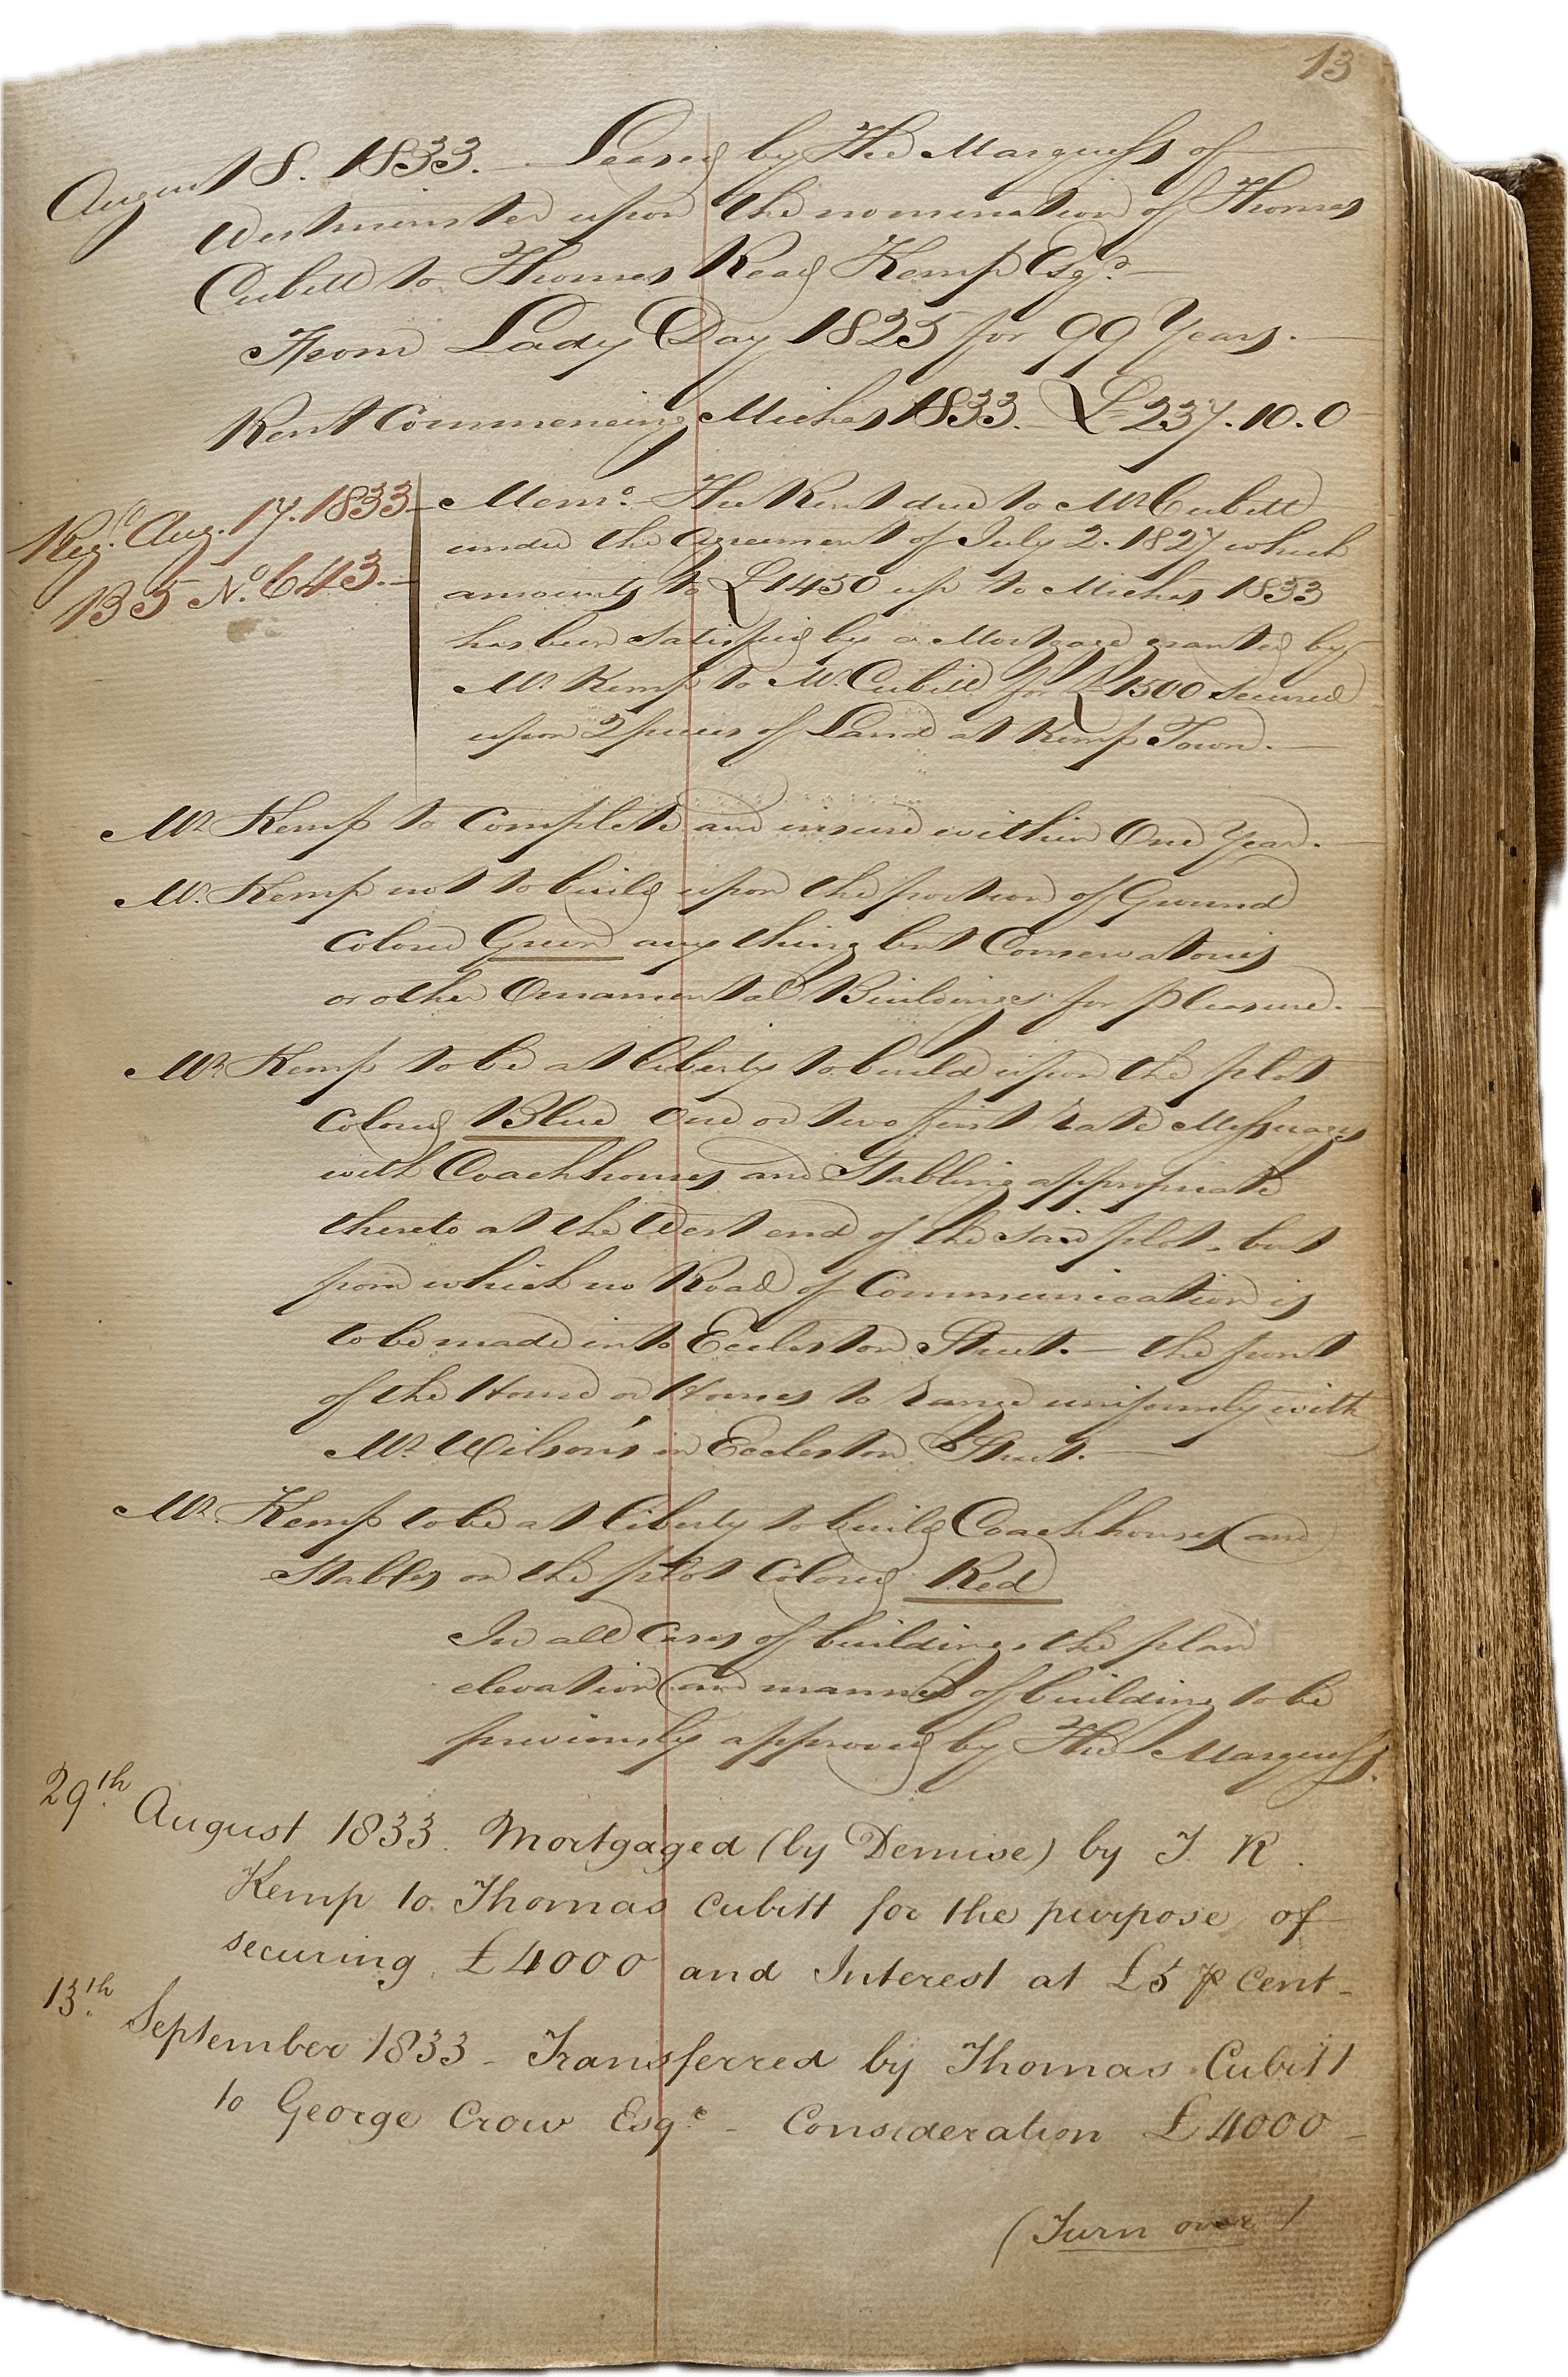 13
August 8. 1833. – Leased by The Marquess of
Westminster upon the nomination of Thomas
Cubitt to Thomas Read Kemp Esqr.
From Lady Day 1825 for 99 Years.
Rent Commencing Michas 1833. £237.10.0
Regd. Aug. 17. 1833
B 5 No. 643.
Memo. The Rent due to Mr Cubitt
under the Agreement of July 2. 1827 which
amounts to £1450 up to Michas 1833
has been satisfied by a Mortgage granted by
Mr. Kemp to Mr. Cubitt for £1500 secured
upon 2 pieces of Land at Kemp Town.
Mr Kemp to Complete and insure within One Year.
Mr. Kemp not to build upon the portion of Ground
Colored Green any thing but Conservatories
or other Ornamental Buildings for pleasure.
Mr. Kemp to be at liberty to build upon the plot
Colored Blue One or two first rate Messuages
with Coachhouses and Stabling appropriate
thereto at the West end of the said plot, but
from which no Road of Communication is
to be made into Eccleston Street. – the front
of the House or Houses to range uniformly with
Mr. Wilson's in Eccleston Street.
Mr. Kemp to be at liberty to build Coachhouses and
Stables on the plot Colored Red
In all Cases of building, the plan
elevation and manner of building to be
previously approved by The Marquess.
29th. August 1833. Mortgaged (by Demise) by T. R.
Kemp to Thomas Cubitt for the purpose of
securing £4000 and Interest at £5 ⅌ Cent –
13th. September 1833 – Transferred by Thomas Cubitt
to George Crow Esqe. – Consideration £4000 –
(Turn over)